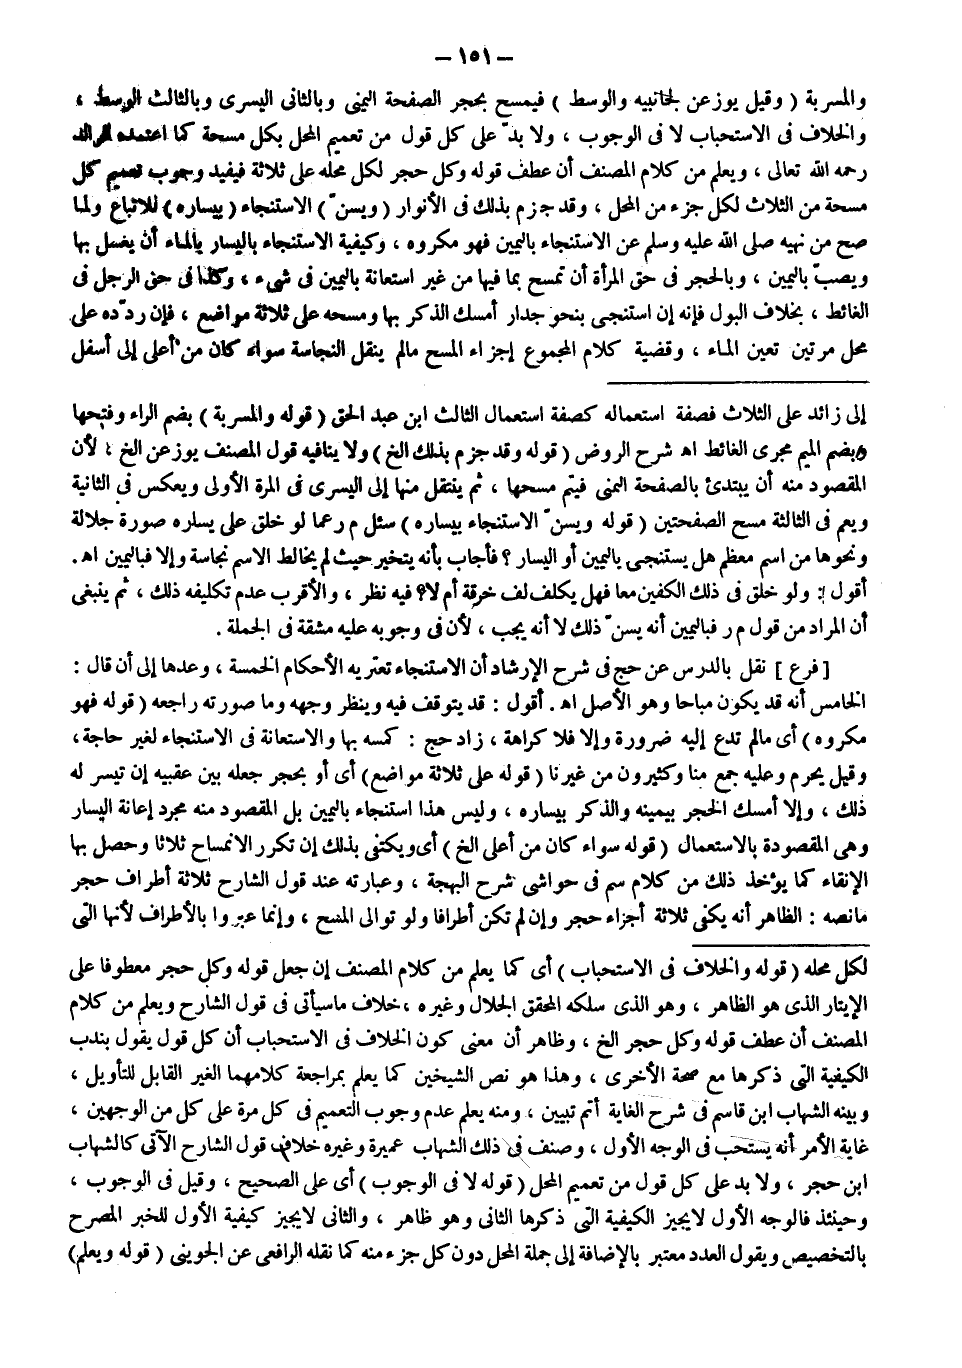 — ١٥١ —
والمسربة ( وقيل يوزعن لجانبيه والوسط ) فيمسح بحجر الصفحة اليمنى وبالثانى اليسرى وبالثالث الوسط ،
والخلاف فى الاستحباب لا فى الوجوب ، ولا بدّ على كل قول من تعميم المحل بكل مسحة كما اعتمده الوالد
رحمه الله تعالى ، ويعلم من كلام المصنف أن عطف قوله وكل حجر لكل محله على ثلاثة فيفيد وجوب تعميم كل
مسحة من الثلاث لكل جزء من المحل ، وقد جزم بذلك فى الأنوار ( ويسنّ ) الاستنجاء ( بيساره ) للاتباع ولما
صح من نهيه صلى الله عليه وسلم عن الاستنجاء باليمين فهو مكروه ، وكيفية الاستنجاء باليسار بالماء أن يغسل بها
ويصبّ باليمين ، وبالحجر فى حق المرأة أن تمسح بما فيها من غير استعانة باليمين فى شىء ، وكذا فى حق الرجل فى
الغائط ، بخلاف البول فإنه إن استنجى بنحو جدار أمسك الذكر بها ومسحه على ثلاثة مواضع ، فإن ردّده على
محل مرتين تعين الماء ، وقضية كلام المجموع إجزاء المسح مالم ينقل النجاسة سواء كان من أعلى إلى أسفل
إلى زائد على الثلاث فصفة استعماله كصفة استعمال الثالث ابن عبد الحق ( قوله والمسربة ) بضم الراء وفتحها
وبضم الميم مجرى الغائط اه شرح الروض ( قوله وقد جزم بذلك الخ ) ولا ينافيه قول المصنف يوزعن الخ ، لأن
المقصود منه أن يبتدئ بالصفحة اليمنى فيتم مسحها ، ثم ينتقل منها إلى اليسرى فى المرة الأولى ويعكس فى الثانية
ويعم فى الثالثة مسح الصفحتين ( قوله ويسنّ الاستنجاء بيساره ) سئل م ر عما لو خلق على يساره صورة جلالة
ونحوها من اسم معظم هل يستنجى باليمين أو اليسار ؟ فأجاب بأنه يتخير حيث لم يخالط الاسم نجاسة وإلا فباليمين اه .
أقول : ولو خلق فى ذلك الكفين معا فهل يكلف لف خرقة أم لا؟ فيه نظر ، والأقرب عدم تكليفه ذلك ، ثم ينبغى
أن المراد من قول م ر فباليمين أنه يسنّ ذلك لا أنه يجب ، لأن فى وجوبه عليه مشقة فى الجملة .
[ فرع ] نقل بالدرس عن حج فى شرح الإرشاد أن الاستنجاء تعتريه الأحكام الخمسة ، وعدها إلى أن قال :
الخامس أنه قد يكون مباحا وهو الأصل اه . أقول : قد يتوقف فيه وينظر وجهه وما صورته راجعه ( قوله فهو
مكروه ) أى مالم تدع إليه ضرورة وإلا فلا كراهة ، زاد حج : كمسه بها والاستعانة فى الاستنجاء لغير حاجة ،
وقيل يحرم وعليه جمع منا وكثيرون من غيرنا ( قوله على ثلاثة مواضع ) أى أو بحجر جعله بين عقبيه إن تيسر له
ذلك ، وإلا أمسك الحجر بيمينه والذكر بيساره ، وليس هذا استنجاء باليمين بل المقصود منه مجرد إعانة اليسار
وهى المقصودة بالاستعمال ( قوله سواء كان من أعلى الخ ) أى ويكتفى بذلك إن تكرر الانمساح ثلاثا وحصل بها
الإنقاء كما يؤخذ ذلك من كلام سم فى حواشى شرح البهجة ، وعبارته عند قول الشارح ثلاثة أطراف حجر
مانصه : الظاهر أنه يكفى ثلاثة أجزاء حجر وإن لم تكن أطرافا ولو توالى المسح ، وإنما عبروا بالأطراف لأنها التى
لكل محله ( قوله والخلاف فى الاستحباب ) أى كما يعلم من كلام المصنف إن جعل قوله وكل حجر معطوفا على
الإيتار الذى هو الظاهر ، وهو الذى سلكه المحقق الجلال وغيره ، خلاف ماسيأتى فى قول الشارح ويعلم من كلام
المصنف أن عطف قوله وكل حجر الخ ، وظاهر أن معنى كون الخلاف فى الاستحباب أن كل قول يقول بندب
الكيفية التى ذكرها مع صحة الأخرى ، وهذا هو نص الشيخين كما يعلم بمراجعة كلامهما الغير القابل للتأويل ،
وبينه الشهاب ابن قاسم فى شرح الغاية أتم تبيين ، ومنه يعلم عدم وجوب التعميم فى كل مرة على كل من الوجهين ،
غاية الأمر أنه يستحب فى الوجه الأول ، وصنف فى ذلك الشهاب عميرة وغيره خلاف قول الشارح الآتى كالشهاب
ابن حجر ، ولا بد على كل قول من تعميم المحل ( قوله لا فى الوجوب ) أى على الصحيح ، وقيل فى الوجوب ،
وحينئذ فالوجه الأول لايجيز الكيفية التى ذكرها الثانى وهو ظاهر ، والثانى لايجيز كيفية الأول للخبر المصرح
بالتخصيص ويقول العدد معتبر بالإضافة إلى جملة المحل دون كل جزء منه كما نقله الرافعى عن الجوينى ( قوله ويعلم )